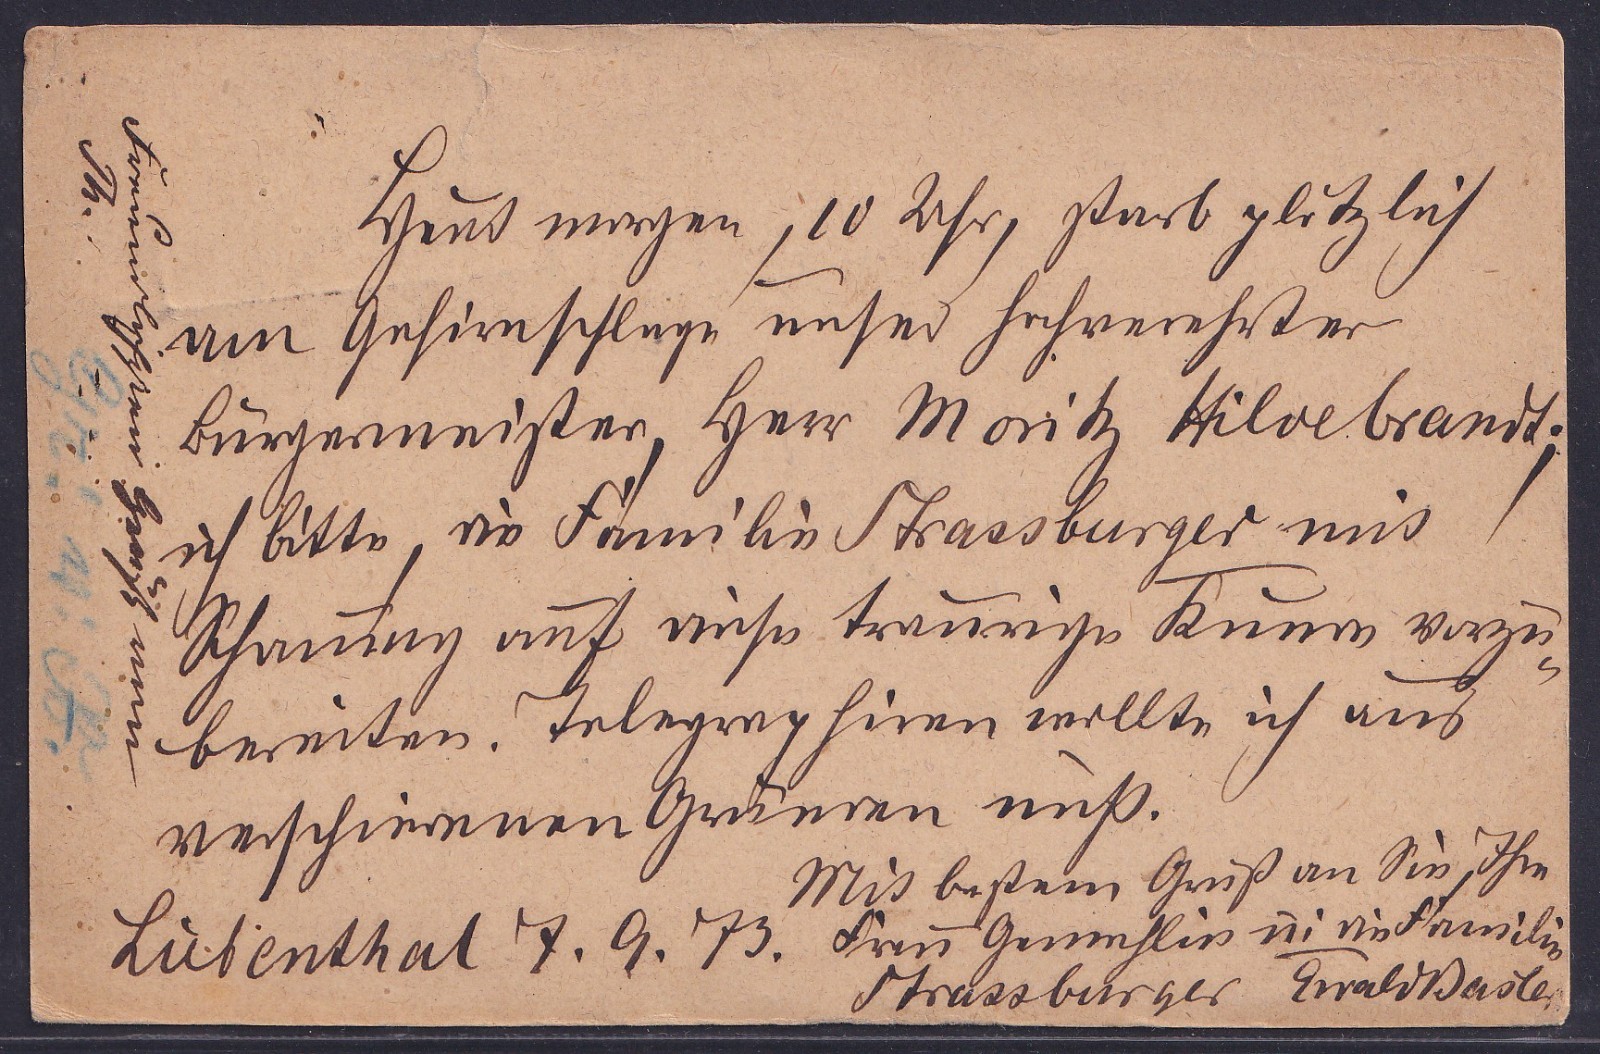 Heut morgen, 10 Uhr, starb plötzlich
am Gehirnschlage unser hochverehrter
Bürgermeister, Herr Moritz Hildebrandt;
ich bitte, die Familie Strassburger mit
Schonung auf diese traurige Kunde vorzu-
bereiten. Telegraphiren wollte ich aus
verschiedenen Gründen nicht.
Mit bestem Gruß an Sie, Ihre
Frau Gemahlin u. die Familie
Strassburger Ewald Basler
Liebenthal 7. 9. 73.